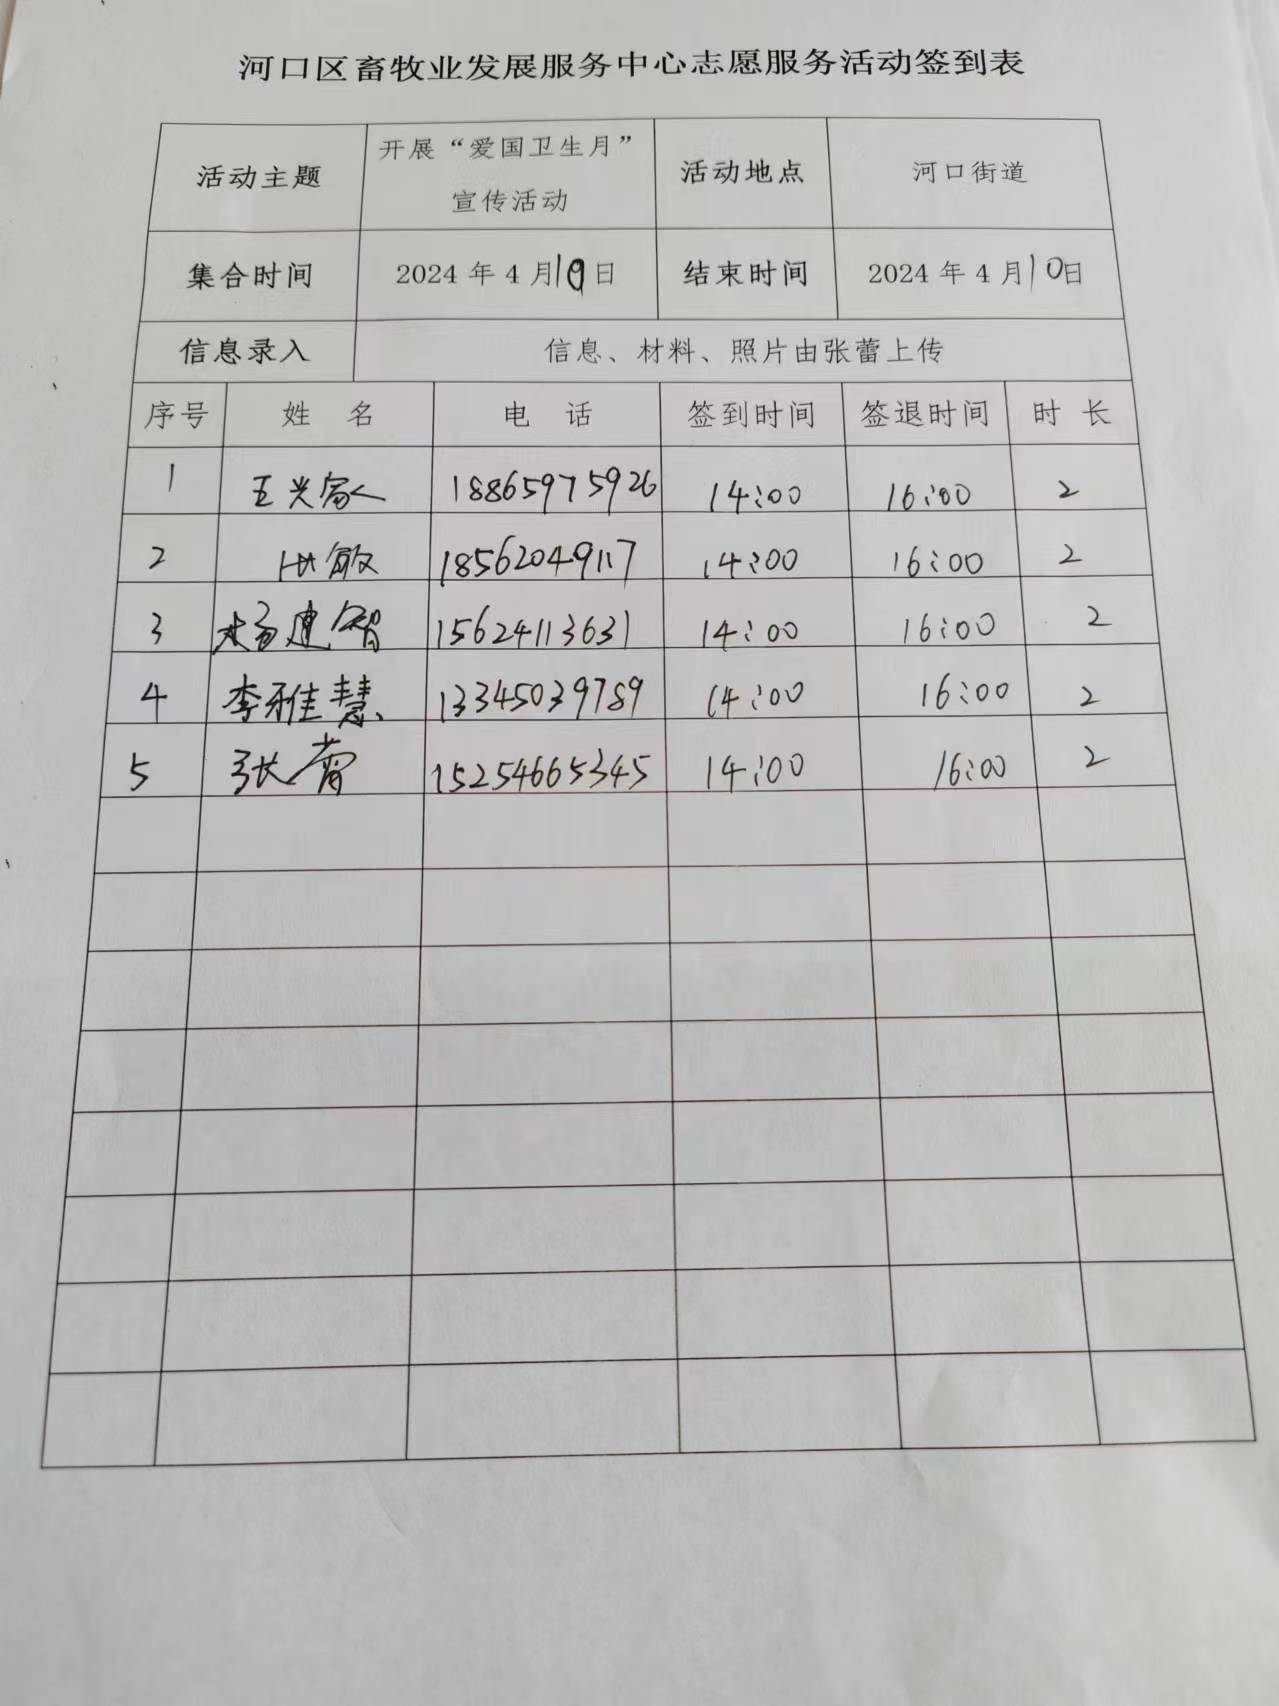 河口区畜牧业发展服务中心志愿服务活动签到表
活动主题 开展“爱国卫生月”宣传活动 活动地点 河口街道
集合时间 2024年4月10日 结束时间 2024年4月10日
信息录入 信息、材料、照片由张蕾上传
序号 姓 名 电 话 签到时间 签退时间 时 长
1 王兴家 18865975926 14:00 16:00 2
2 敏 18562049117 14:00 16:00 2
3 杨建智 15624113631 14:00 16:00 2
4 李雅慧 13345039789 14:00 16:00 2
5 张蕾 15254665345 14:00 16:00 2